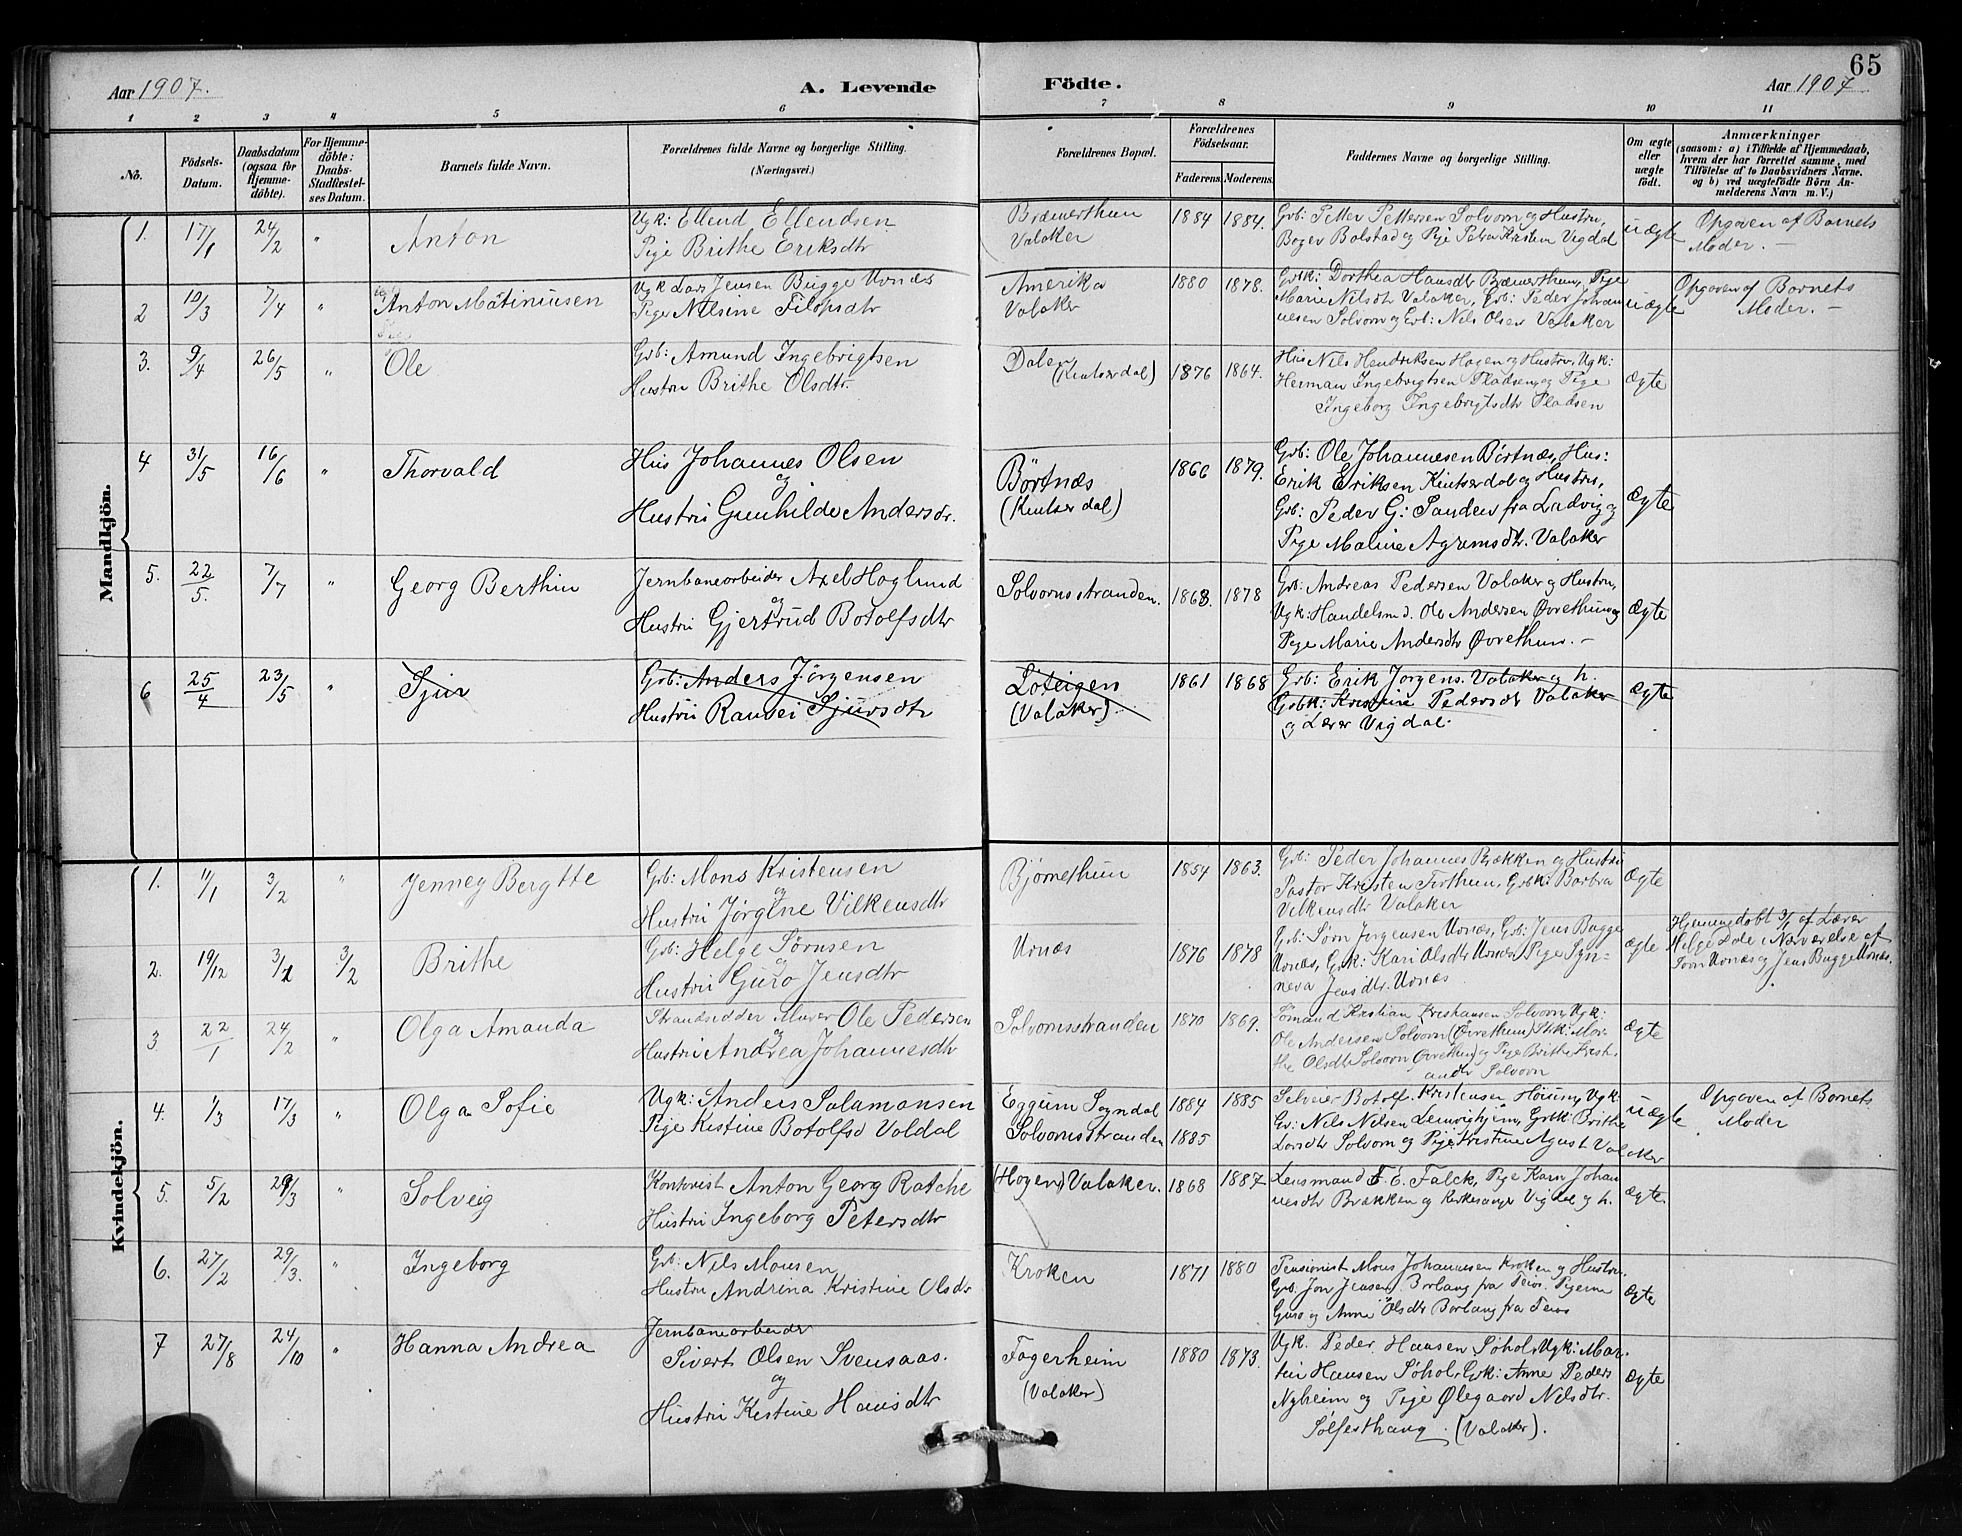 65
Aar 1907. A. Levende Födte. Aar 1907
1 2 3 4 5 6 7 8 9 10 11
No. Födsels-Datum. Daabsdatum (ogsaa for Hjemme-döbte). For Hjemme-döbte: Daabs-Stadfæstel-ses Datum. Barnets fulde Navn. Forældrenes fulde Navne og borgerlige Stilling. (Næringsvei.) Forældrenes Bopæl. Forældrenes Födselsaar. Faderens. Moderens. Faddernes Navne og borgerlige Stilling. Om ægte eller uægte födt. Anmærkninger (saasom: a) i Tilfælde af Hjemmedaab, hvem der har forrettet samme, med Tilföielse af to Daabsvidners Navne. og b) ved uægtefödte Börn An-melderens Navn m. V.)
Mandkjön.
1. 17/1 24/2 " Anton
Ugk: Ellend Ellendsen
Pige Brithe Eriksdtr
Bræmerthun
Valaker
1884 1884.
Grb: Petter Pettersen Solvorn og Hustru,
Bolstad og Pige Petra Kristen Vigdal
uægte
Opgaven af Barnets
Moder. —
2 10/3 7/4 " Anton Matiniusen
Ugk Lars Jensen Bugge Urnæs
Pige Nilsine Filopsdtr
Amerika
Valaker
1880 1878.
Grbk: Dorthea Hansdtr Bræmerthun, Pige
Marie Nilsdtr Valaker, Grb: Peder Johan
nesen Solvorn og Grb: Nils Olsen Valaker
uægte
Opgaven af Barnets
Moder. —
3. 9/4 26/5 " Ole
Grb: Amund Ingebrigtsen
Hustru Brithe Olsdtr.
Dalen
(Kintserdal)
1876 1864.
Hus Nils Hendriksen Hagen og Hustru, Ugk:
Herman Ingebrigtsen Pladsen og Pige
Ingeborg Ingebrigtsdtr Pladsen
ægte
4 31/5 16/6 " Thorvald
Hus Johannes Olsen
og
Hustru Gunhilde Andersdr.
Börtnæs
(Kintserdal)
1860 1879.
Grb: Ole Johannesen Börtnæs, Hus:
Erik Eriksen Kintserdal og Hustru,
Grb: Peder G: Sanden fra Ludvig og
Pige Maline Valaker
ægte
5. 22/5. 7/7 " Georg Berthin
Jernbanearbeider Axel Hoglund
og
Hustru Gjertrud Botolfsdtr
Solvornsstranden.
1868. 1878
Grb: Andreas Pedersen Valaker og Hustru,
Ugk: Handelsmd. Ole Andersen Øvrethun og
Pige Marie Andersdtr Øvrethun. —
ægte
6 25/4 23/5 " Sjur
Grb: Anders Jörgensen
Hustru Randei Sjursdtr
Loteigen
(Valaker)
1861 1868
Grb: Erik Jörgens. Valaker og h.
Grbk: Kristine Pedersdtr Valaker
og Lærer Vigdal.
ægte
Kvindekjön.
1. 11/1 3/2 " Jenney Bergtte
Grb: Mons Kristensen
og
Hustru Jörgine Vilkensdtr
Bjørnethun
1854 1863.
Grb: Peder Johannes Brækken og Hustru
Pastor Kristen Forthun, Grbk: Barbra
Vilkensdtr Valaker
ægte
2. 19/12 3/2 3/2 Brithe
Grb: Helge Sörnsen
og
Hustru Guro Jensdtr
Urnæs
1876 1878
Grb: Sörn Jörgensen Urnæs, Grb: Jens Bugge
Urnæs, Grbk: Kari Olsdtr Urnæs Pige Syn=
neva Jensdtr. Urnæs
ægte
Hjemmedøbt 3/1 af Lærer
Helge Lole i Nærværelse af
Sörn Urnæs og Jens Bugge Urnæs.
3. 22/1 24/2 " Olga Amanda
Strandsidder Murer Ole Pedersen
og
Hustru Andrea Johannesdtr
Solvornsstranden
1870 1869.
Sömand Kristian Kristiansen Solvorn, Ugk:
Ole Andersen Solvorn (Øvrethun) Mar-
the Olsdtr Solvorn (Øvrethun) og Pige Brithe Krist-
Solvorn
ægte
4. 1/3 17/3 " Olga Sofie
Ugk: Anders Salamonsen
Pige Kistine Botolfsd Valdal
Eggum Sogndal
Solvornsstranden
1884 1885
1885
Selveier Botolf Kristensen Ugk:
Nils Nilsen Grbk: Brithe
Larsdtr Solvorn og Pige Kristine Agust Valaker
uægte
Opgaven af Barnets
Moder
5. 5/2 29/3 " Solveig
Kontorist Anton Georg Ratche
Hustru Ingeborg Petersdtr
(Hagen) Valaker.
1868 1887
Lensmand E. Falck, Pige Karn Johan
nesdtr Brækken og Kirkesanger Vigdal og h.
ægte.
6. 27/2 29/3. " Ingeborg
Grb: Nils Monsen
Hustru Andrina Kristine Olsdtr
Kroken
1871 1880
Pensionist Mons Johannesen Kroken og Hustru.
Grb. Jon Jensen Borlaug fra Feios. Pigerne
Guro og Anne Olsdtr Borlaug fra Feios
ægte
7 27/8 24/10 " Hanna Andrea
Jernbanearbeider
Sivert Olsen Svensaas.
og
Hustru Kestine Hansdtr
Fagerheim
(Valaker)
1880 1873.
Ugk. Peder Hansen Søhol, Ugk: Mar-
tin Hansen Søhol, Gk: Anne Peders
Nyheim og Pige Ølegaard Nilsdtr.
Sølfesthaug (Valaker).
ægte